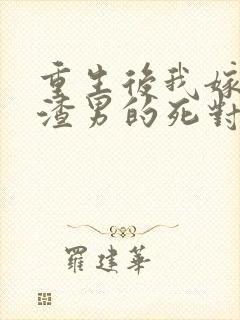 重生後我嫁
渣男的死對
羅建華